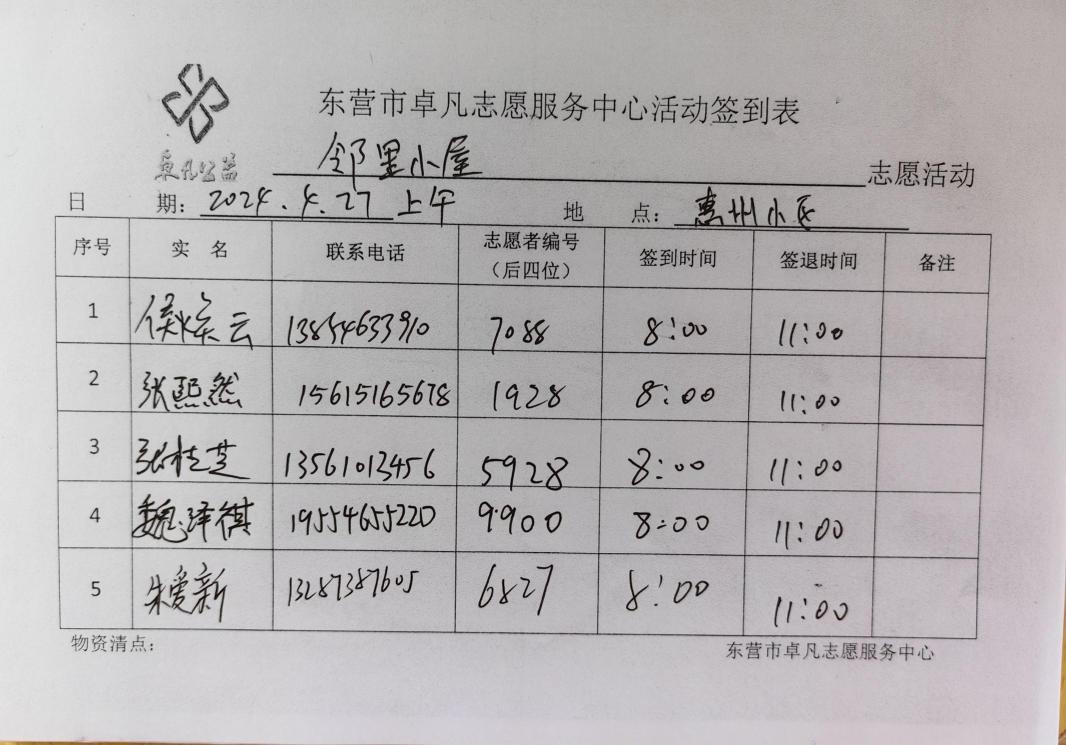 东营市卓凡志愿服务中心活动签到表
卓凡公益
邻里小屋 志愿活动
日 期: 2024.4.27上午 地 点: 惠州小区
序号 实 名 联系电话 志愿者编号(后四位) 签到时间 签退时间 备注
1 侯焕云 13854633910 7088 8:00 11:00
2 张熙然 15615165678 1928 8:00 11:00
3 张桂芝 13561013456 5928 8:00 11:00
4 魏泽祺 19554655220 9900 8:00 11:00
5 朱爱新 13287387605 6827 8:00 11:00
物资清点: 东营市卓凡志愿服务中心